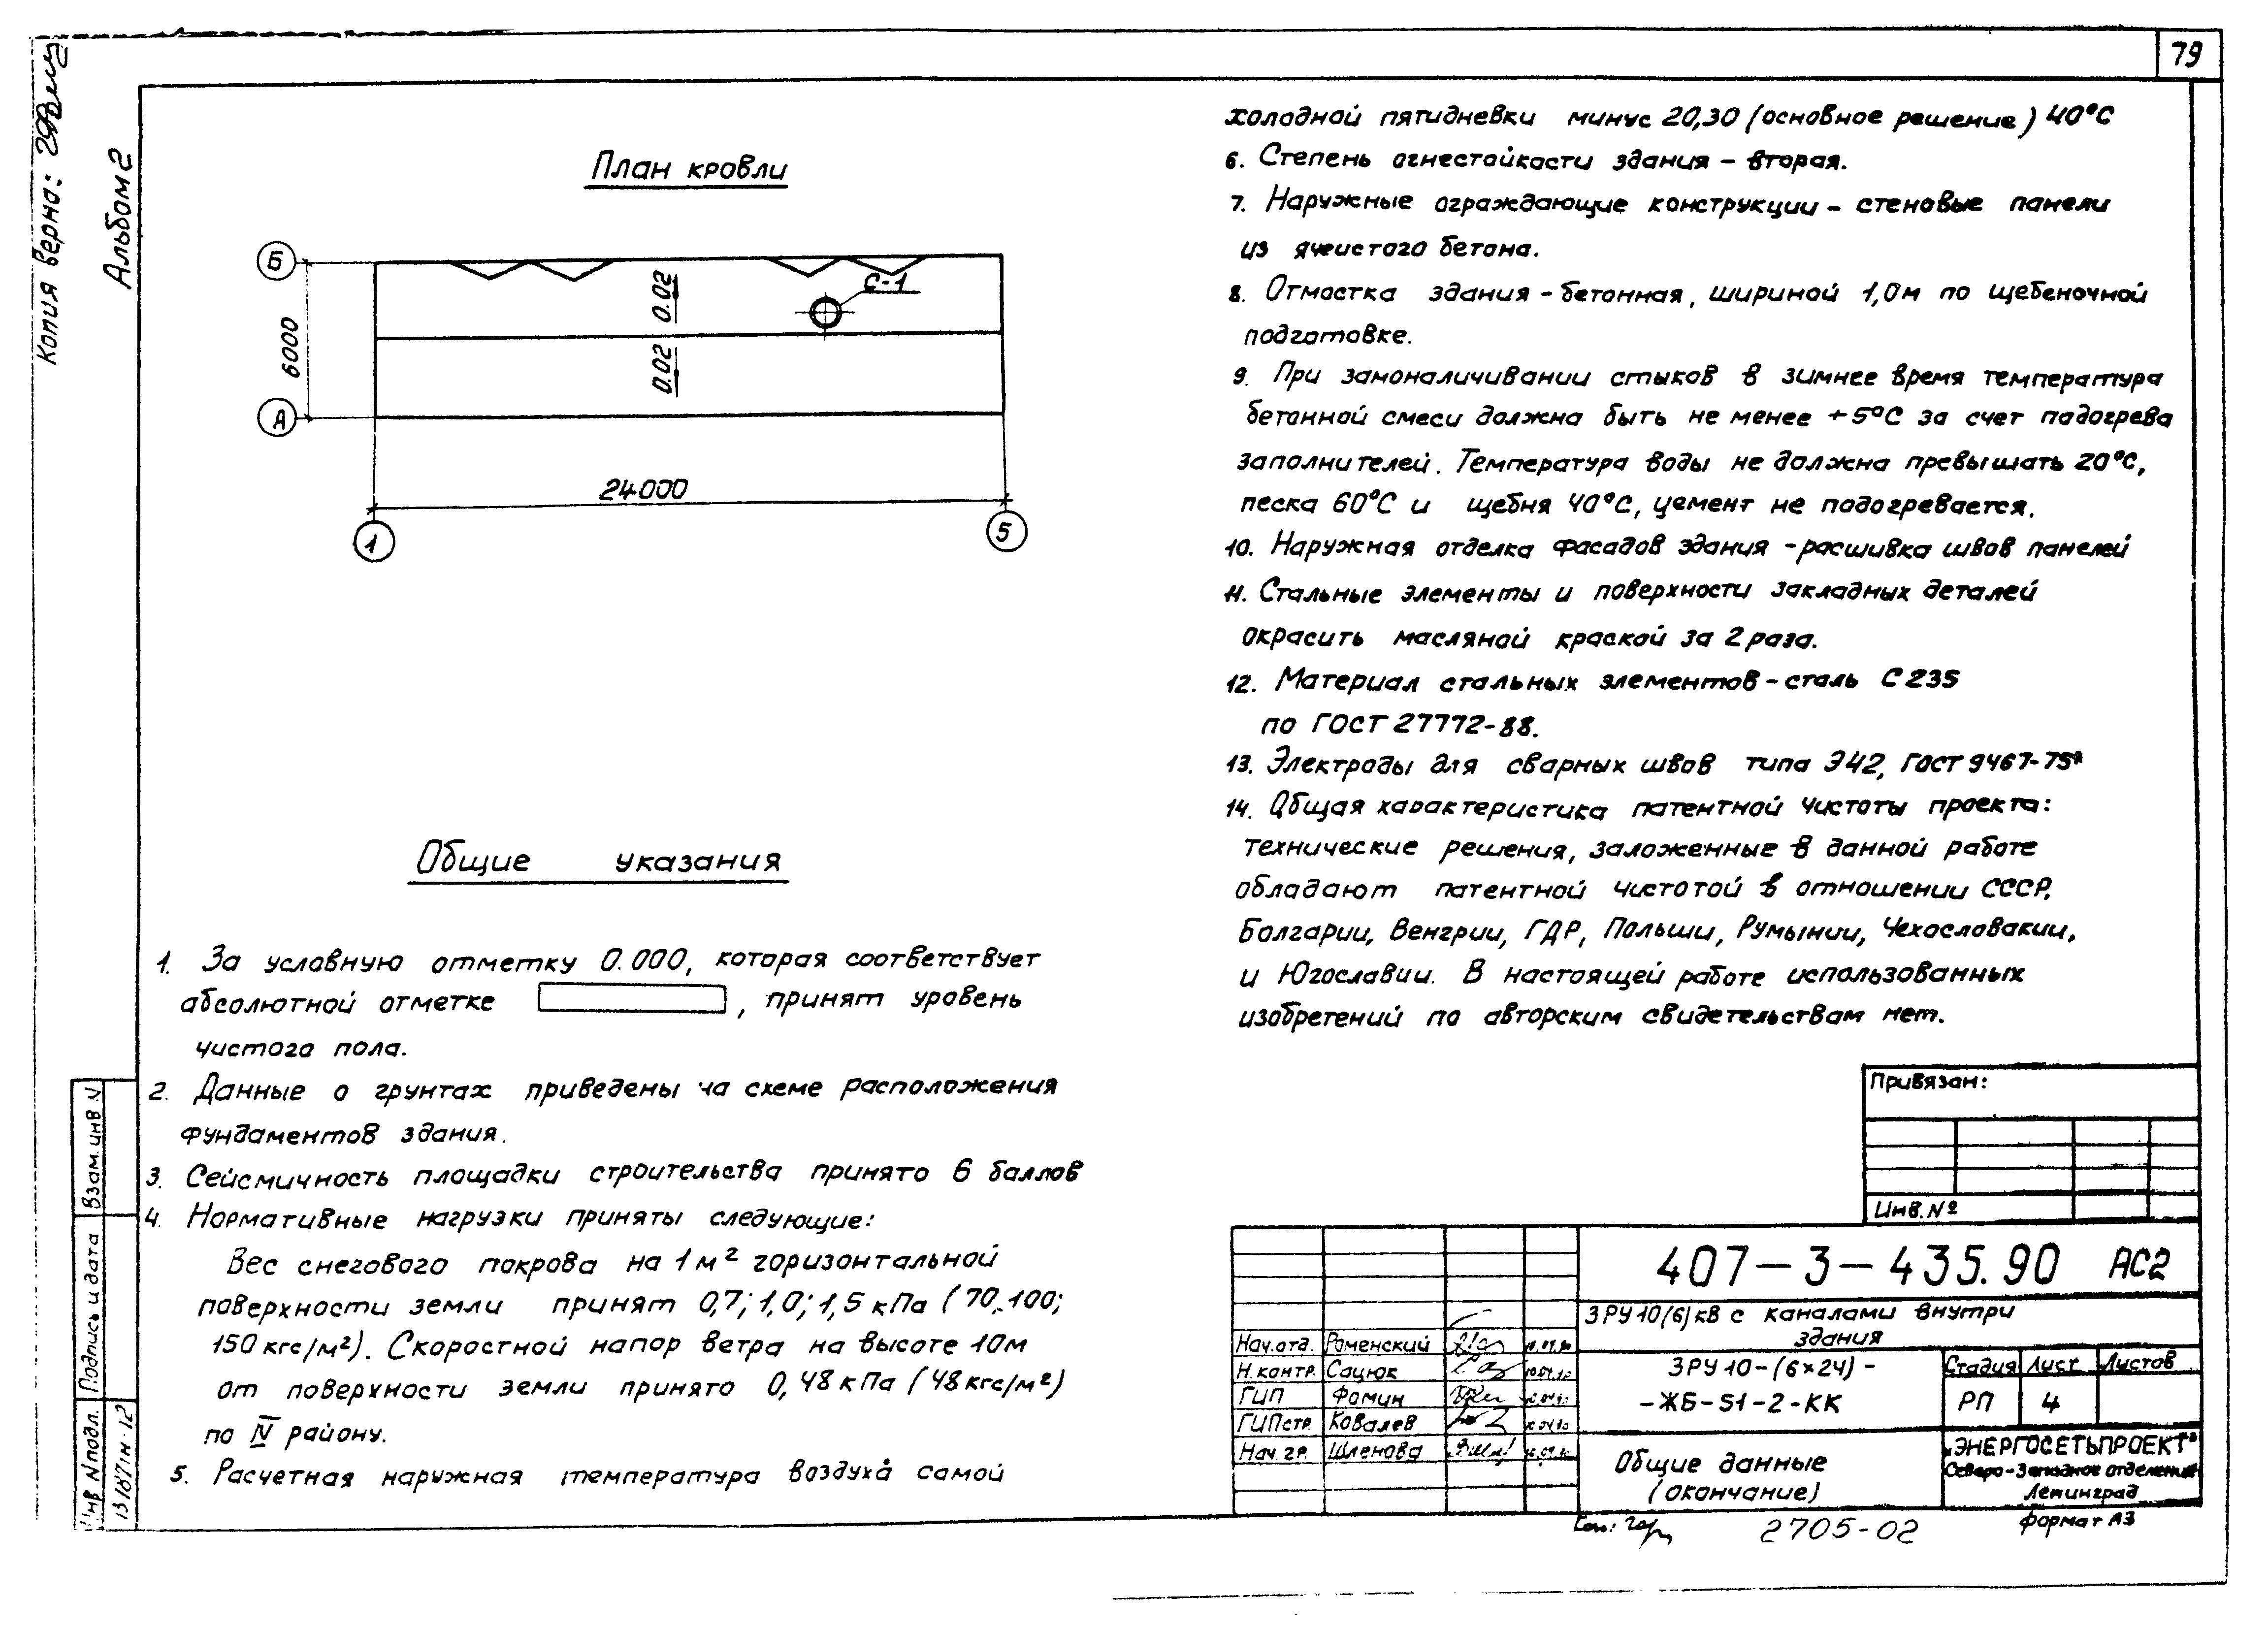 79
Копия верно:
Альбом 2
План кровли
Б
6000
А
0.02
0.02
С-1
24000
1
5
Общие указания
1. За условную отметку 0.000, которая соответствует
абсолютной отметке , принят уровень
чистого пола.
2. Данные о грунтах приведены на схеме расположения
фундаментов здания.
3. Сейсмичность площадки строительства принято 6 баллов
4. Нормативные нагрузки приняты следующие:
Вес снегового покрова на 1м² горизонтальной
поверхности земли принят 0,7; 1,0; 1,5 кПа (70, 100;
150 кгс/м²). Скоростной напор ветра на высоте 10м
от поверхности земли принято 0,48 кПа (48 кгс/м²)
по IV району.
5. Расчетная наружная температура воздуха самой
холодной пятидневки минус 20,30 (основное решение) 40°С
6. Степень огнестойкости здания – вторая.
7. Наружные ограждающие конструкции – стеновые панели
из ячеистого бетона.
8. Отмостка здания – бетонная, шириной 1,0м по щебеночной
подготовке.
9. При замоноличивании стыков в зимнее время температура
бетонной смеси должна быть не менее +5°С за счет подогрева
заполнителей. Температура воды не должна превышать 20°С,
песка 60°С и щебня 40°С, цемент не подогревается.
10. Наружная отделка фасадов здания – расшивка швов панелей
11. Стальные элементы и поверхности закладных деталей
окрасить масляной краской за 2 раза.
12. Материал стальных элементов – сталь С235
по ГОСТ 27772-88.
13. Электроды для сварных швов типа Э42, ГОСТ 9467-75*
14. Общая характеристика патентной чистоты проекта:
технические решения, заложенные в данной работе
обладают патентной чистотой в отношении СССР,
Болгарии, Венгрии, ГДР, Польши, Румынии, Чехословакии,
и Югославии. В настоящей работе использованных
изобретений по авторским свидетельствам нет.
Привязан:
Инв. №
407-3-435.90 АС2
ЗРУ 10(6)кВ с каналами внутри
здания
Нач.отд. Роменский
Н.контр. Сацюк
ГИП Фомин
ГИПстр. Ковалев
Нач. гр. Шленова
ЗРУ 10-(6×24)-
-ЖБ-51-2-КК
Стадия Лист Листов
РП 4
Общие данные
(окончание)
„ЭНЕРГОСЕТЬПРОЕКТ"
Северо-Западное отделение
Ленинград
2705-02
Формат А3
Взам. инв N
Подпись и дата
Инв N подл.